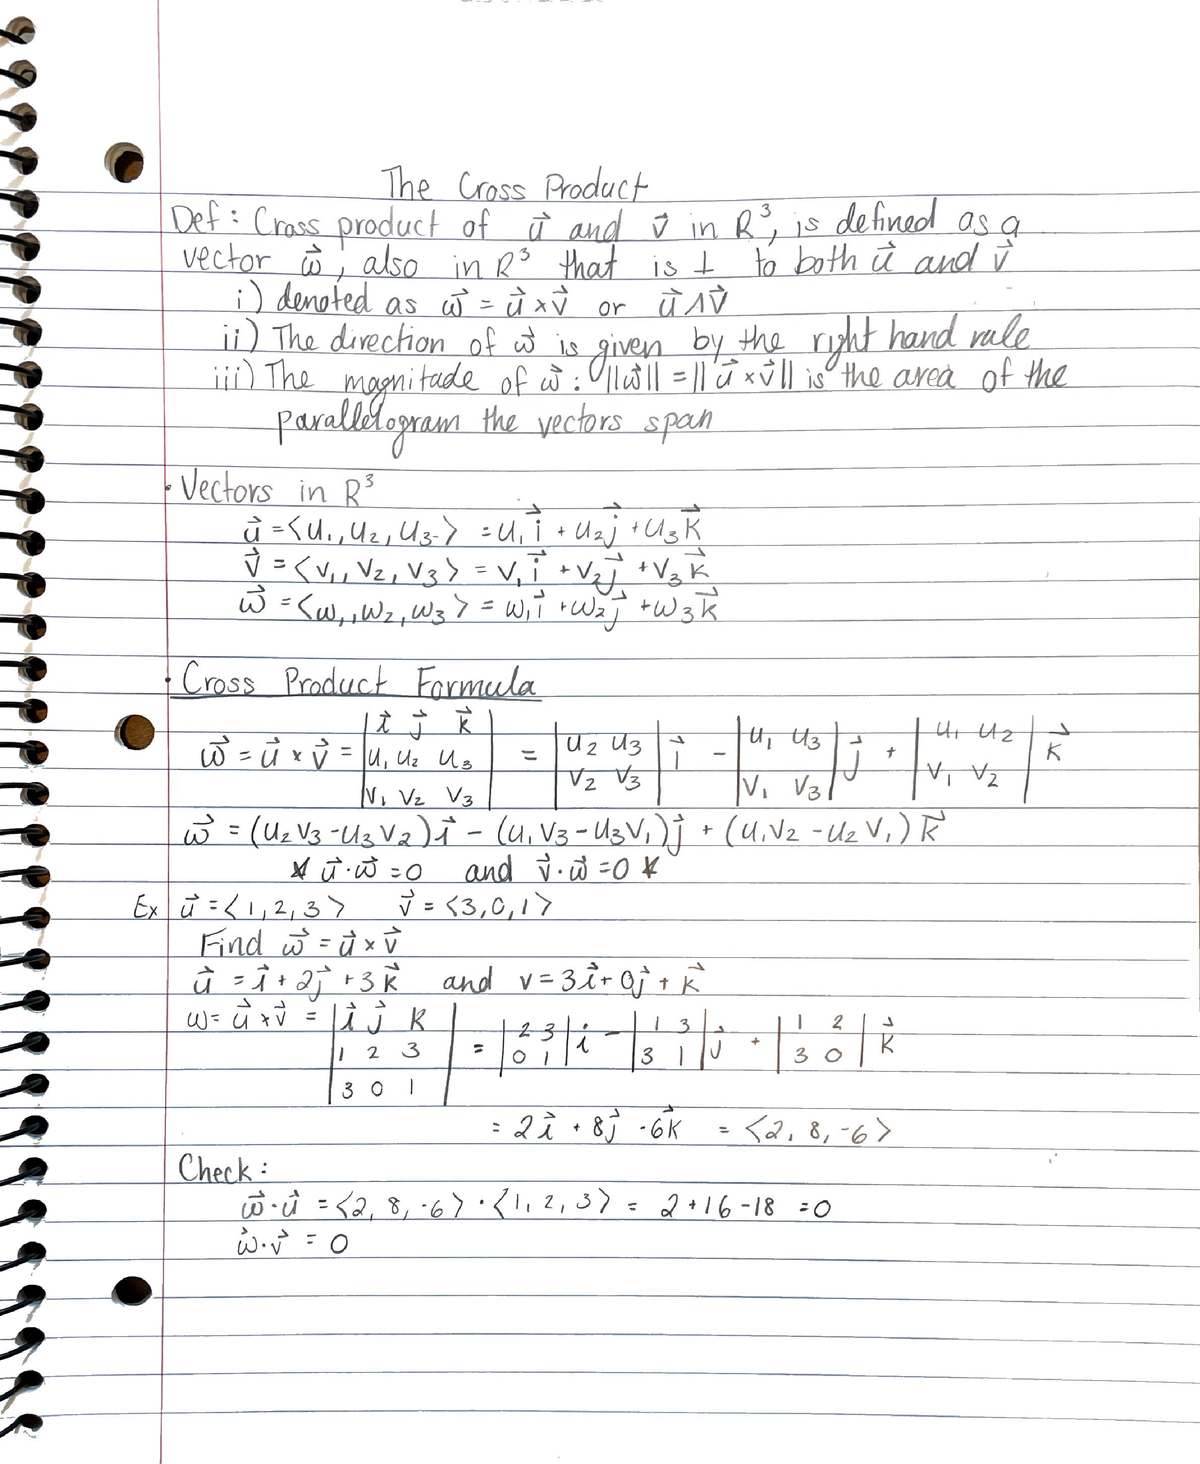 The Cross Product
Def: Cross product of u⃗ and v⃗ in R³, is defined as a
vector w⃗, also in R³ that is ⊥ to both u⃗ and v⃗
i) denoted as w⃗ = u⃗ x v⃗ or u⃗ ∧ v⃗
ii) The direction of w⃗ is given by the right hand rule
iii) The magnitade of w⃗ : ||w⃗|| = ||u⃗ x v⃗|| is the area of the
parallelogram the vectors span
• Vectors in R³
u⃗ = <u₁, u₂, u₃> = u₁i⃗ + u₂j⃗ + u₃k⃗
v⃗ = <v₁, v₂, v₃> = v₁i⃗ + v₂j⃗ + v₃k⃗
w⃗ = <w₁, w₂, w₃> = w₁i⃗ + w₂j⃗ + w₃k⃗
• Cross Product Formula
|i⃗ j⃗ k⃗|
w⃗ = u⃗ x v⃗ = |u₁ u₂ u₃| = |u₂ u₃| i⃗ - |u₁ u₃| j⃗ + |u₁ u₂| k⃗
|v₁ v₂ v₃| |v₂ v₃| |v₁ v₃| |v₁ v₂|
w⃗ = (u₂v₃ - u₃v₂)i⃗ - (u₁v₃ - u₃v₁)j⃗ + (u₁v₂ - u₂v₁)k⃗
* u⃗ · w⃗ = 0 and v⃗ · w⃗ = 0 *
Ex u⃗ = <1, 2, 3> v⃗ = <3, 0, 1>
Find w⃗ = u⃗ x v⃗
u⃗ = i⃗ + 2j⃗ + 3k⃗ and v = 3i⃗ + 0j⃗ + k⃗
w = u⃗ x v⃗ = |i⃗ j⃗ k| = |2 3| i - |1 3| j⃗ + |1 2| k⃗
|1 2 3| |0 1| |3 1| |3 0|
|3 0 1|
= 2i⃗ + 8j⃗ - 6k⃗ = <2, 8, -6>
Check:
w⃗ · u⃗ = <2, 8, -6> · <1, 2, 3> = 2 + 16 - 18 = 0
w⃗ · v⃗ = 0